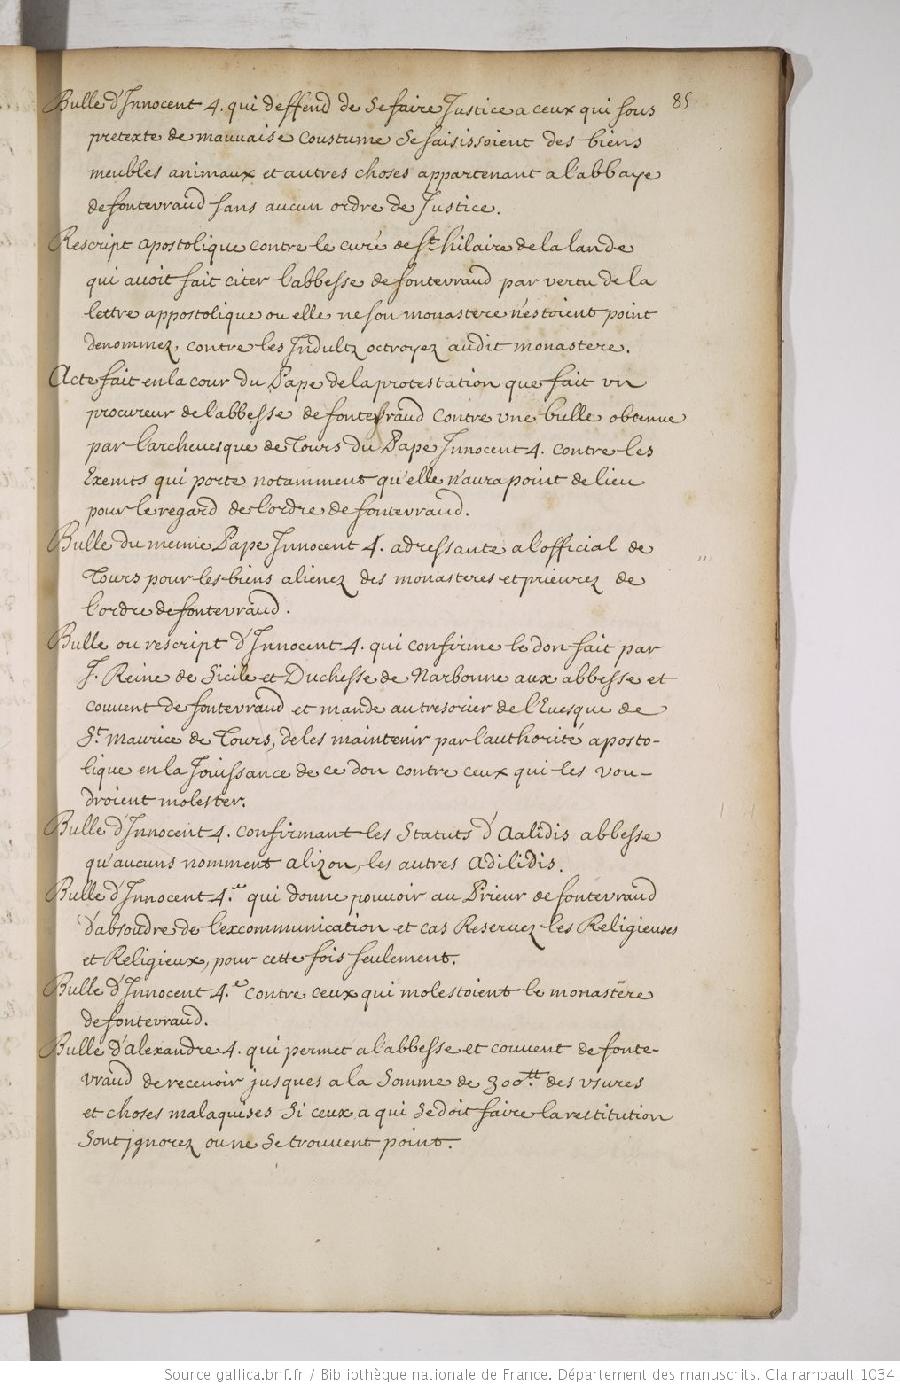 85
Bulle d'Innocent 4. qui deffend de se faire Justice a ceux qui sous
pretexte de mauvaise coustume se saisissoient des biens
meubles animaux et autres choses appartenant a l'abbaye
de fontevraud sans aucun ordre de Justice.
Rescript apostolique contre le curé de St. hilaire de la lande
qui avoit fait citer l'abbesse de fontevraud par vertu de la
lettre appostolique ou elle ne son monastere n'estoient point
denommez, contre les Indultz octroyez audit monastere.
Acte fait en la cour du Pape de la protestation que fait un
procureur de l'abbesse de fontevraud contre une bulle obtenue
par l'archevesque de Tours du Pape Innocent 4. contre les
Exemts qui porte notamment qu'elle n'aura point de lieu
pour le regard de l'ordre de fontevraud.
Bulle du meme Pape Innocent 4. adressante a l'official de
Tours pour les biens alienez des monasteres et prieurez de
l'ordre de fontevraud.
Bulle ou rescript d'Innocent 4. qui confirme le don fait par
J. Reine de Sicile et Duchesse de Narbonne aux abbesse et
couvent de fontevraud et mande au tresorier de l'Evesque de
St. Maurice de Tours, de les maintenir par l'authorité aposto-
lique en la Jouissance de ce don contre ceux qui les vou-
droient molester.
Bulle d'Innocent 4. confirmant les Statuts d'Aalidis abbesse
qu'aucuns nomment alizon, les autres Adilidis.
Bulle d'Innocent 4.e qui donne pouvoir au Prieur de fontevraud
d'absoudre de l'excommunication et cas Reservez les Religieuses
et Religieux, pour cette fois seulement.
Bulle d'Innocent 4.e contre ceux qui molestoient le monastere
de fontevraud.
Bulle d'alexandre 4. qui permet a l'abbesse et couvent de fonte-
vraud de recevoir jusques a la Somme de 300.tt des usures
et choses malaquises Si ceux a qui se doit faire la restitution
Sont ignorez ou ne se trouvent point.
Source gallica.bnf.fr / Bibliothèque nationale de France. Département des manuscrits. Clairambault 1034